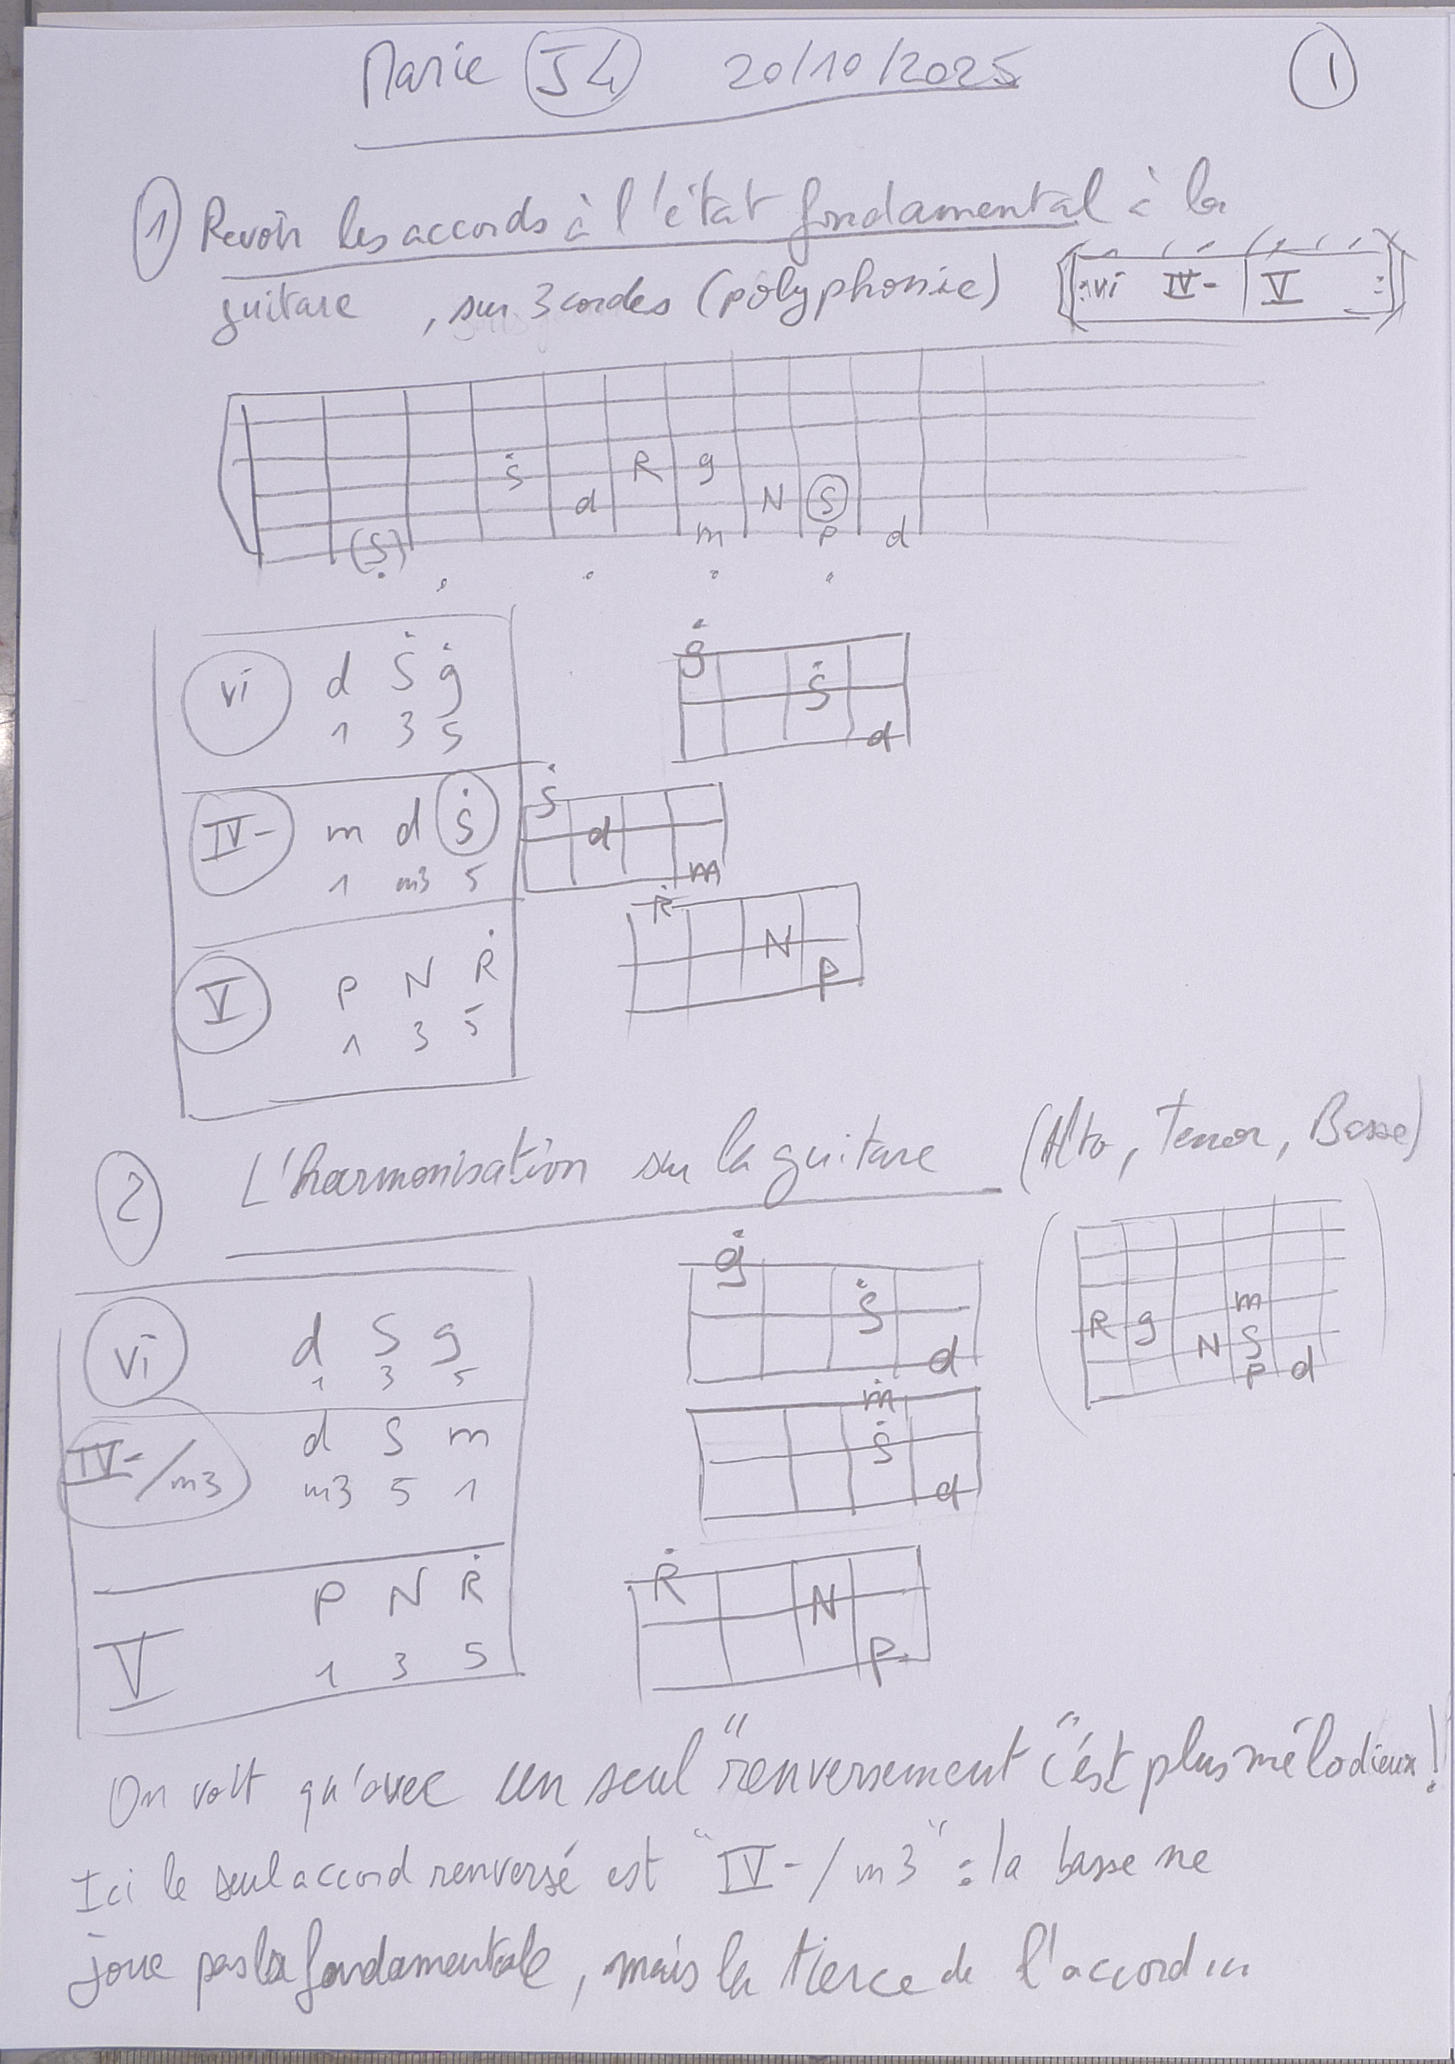 Marie J4 20/10/2025 1
1 Revoir les accords à l'état fondamental à la
guitare, sur 3 cordes (polyphonie) vi IV- V
Ṡ R g
d N S
(S) m P d
vi d Ṡ ġ
1 3 5
ġ
Ṡ
d
IV- m d Ṡ
1 m3 5
Ṡ
d
m
V P N Ṙ
1 3 5
Ṙ
N
P
2 L'harmonisation sur la guitare (Alto, Tenor, Basse)
vi d S g
1 3 5
ġ
Ṡ
d
m
R g N S
P d
IV-/m3 d S m
m3 5 1
ṁ
Ṡ
d
V P N Ṙ
1 3 5
Ṙ
N
P
On voit qu'avec un seul "renversement" c'est plus mélodieux!
Ici le seul accord renversé est "IV-/m3" : la basse ne
joue pas la fondamentale, mais la tierce de l'accord...